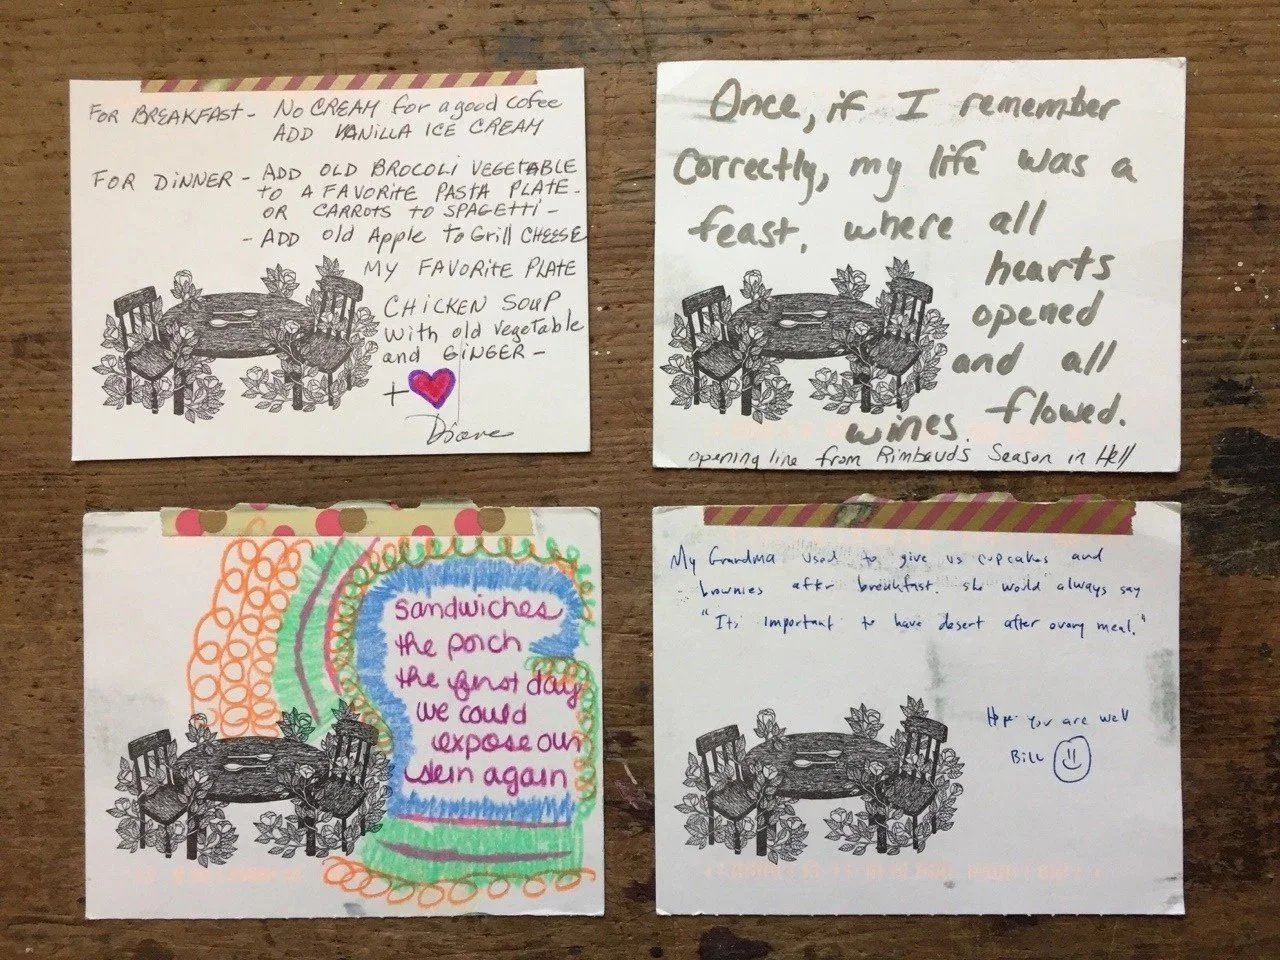 FOR BREAKFAST - NO CREAM for a good cofee
ADD VANILLA ICE CREAM
FOR DINNER - ADD OLD BROCOLI VEGETABLE
TO A FAVORITE PASTA PLATE -
OR CARROTS TO SPAGETTI -
- ADD old Apple to Grill CHEESE
MY FAVORITE PLATE
CHICKEN SOUP
with old vegetable
and GINGER -
+
Diane
Once, if I remember
correctly, my life was a
feast, where all
hearts
opened
and all
wines flowed.
opening line from Rimbaud's Season in Hell
sandwiches
the porch
the first day
we could
expose our
skin again
My Grandma used to give us cupcakes and
brownies after breakfast. She would always say
"Its important to have desert after every meal."
Hope you are well
Bill